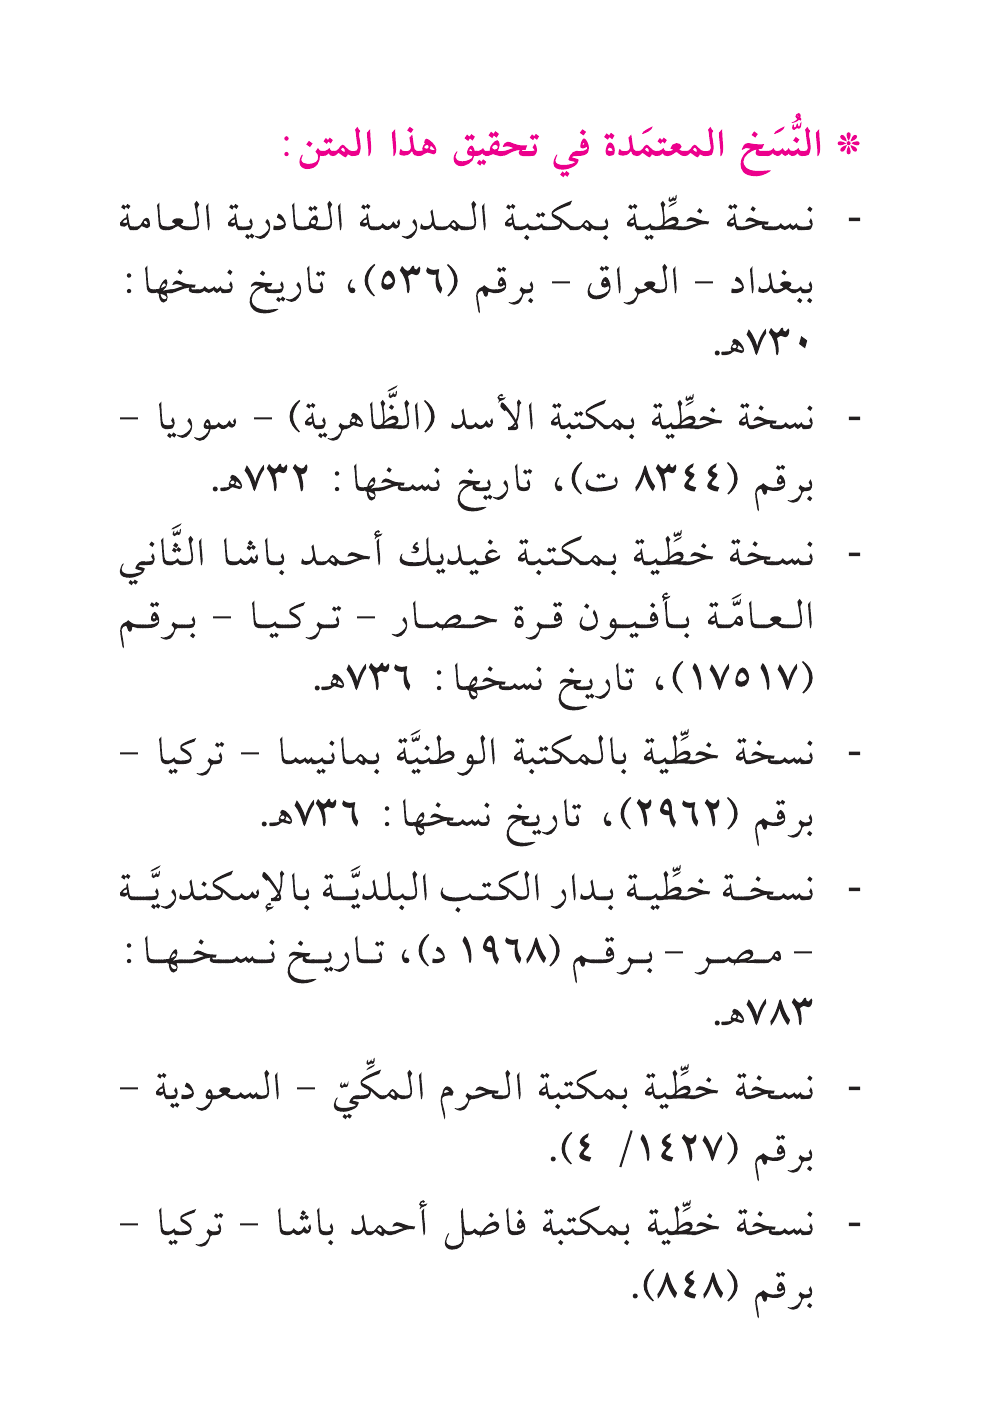 ❊ النُّسَخ المعتمَدة في تحقيق هذا المتن:
- نسخة خطِّية بمكتبة المدرسة القادرية العامة
ببغداد – العراق – برقم (٥٣٦)، تاريخ نسخها:
٧٣٠هـ.
- نسخة خطِّية بمكتبة الأسد (الظَّاهرية) – سوريا –
برقم (٨٣٤٤ ت)، تاريخ نسخها: ٧٣٢هـ.
- نسخة خطِّية بمكتبة غيديك أحمد باشا الثَّاني
العامَّة بأفيون قرة حصار – تركيا – برقم
(١٧٥١٧)، تاريخ نسخها: ٧٣٦هـ.
- نسخة خطِّية بالمكتبة الوطنيَّة بمانيسا – تركيا –
برقم (٢٩٦٢)، تاريخ نسخها: ٧٣٦هـ.
- نسخة خطِّية بدار الكتب البلديَّة بالإسكندريَّة
– مصر – برقم (١٩٦٨ د)، تاريخ نسخها:
٧٨٣هـ.
- نسخة خطِّية بمكتبة الحرم المكِّيّ – السعودية –
برقم (١٤٢٧/ ٤).
- نسخة خطِّية بمكتبة فاضل أحمد باشا – تركيا –
برقم (٨٤٨).